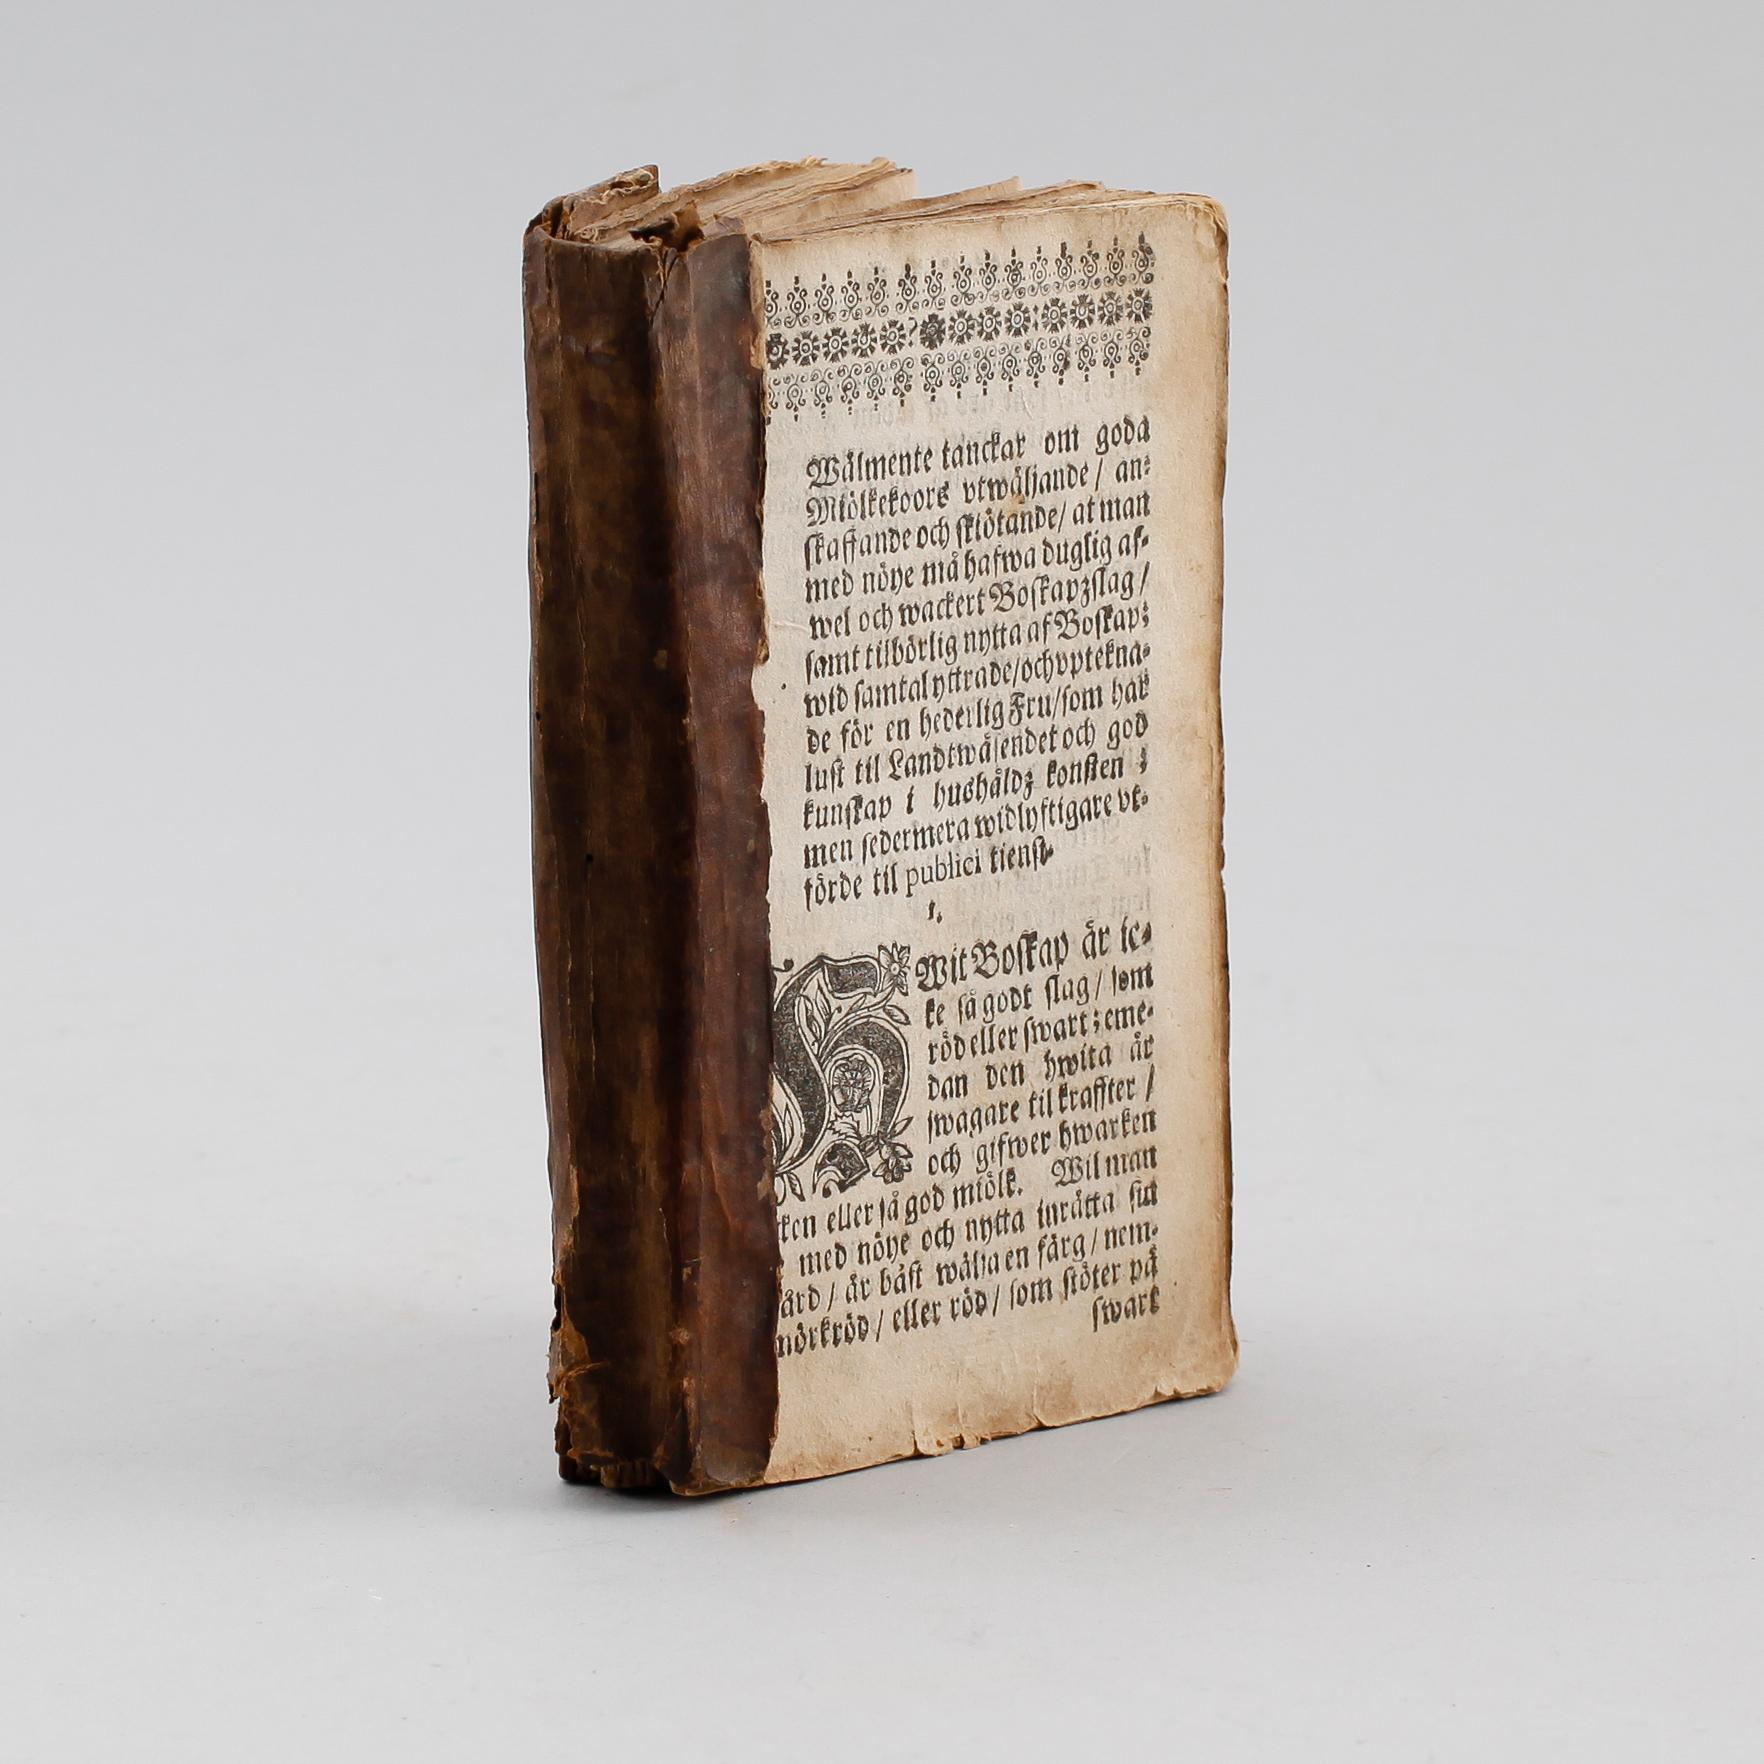 Wälmente tanckar om goda
Miölkekoors vtwäljande / an⸗
skaffande och skiötande / at man
med nöye må hafwa duglig af⸗
wel och wackert Boskapzslag /
samt tilbörlig nytta af Boskap;
wid samtal yttrade / och vptekna⸗
de för en hederlig Fru / som har
lust til Landtwäsendet och god
kunskap i hushåldz konsten ;
men sedermera widlyftigare vt⸗
förde til publici tienst.
1.
HWit Boskap är ic⸗
ke så godt slag / som
röd eller swart ; eme⸗
dan den hwita är
swagare til kraffter /
och gifwer hwarken
ken eller så god miölk. Wil man
med nöye och nytta inrätta sin
ård / är bäst wälja en färg / nem⸗
mörkröd / eller röd / som stöter på
swart